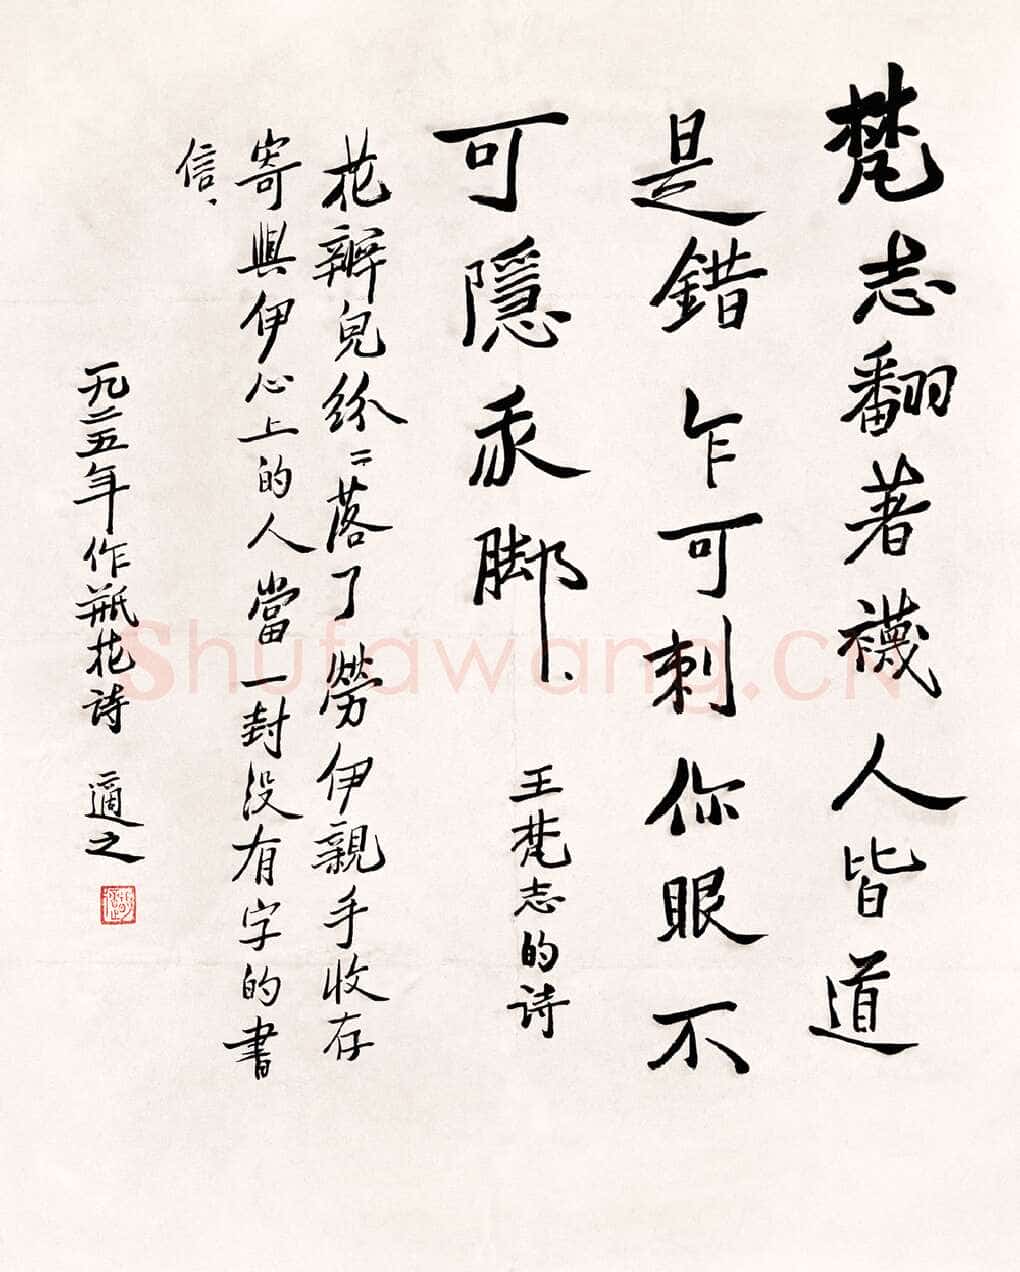 梵志翻著襪人皆道
是錯乍可刺你眼不
可隱我脚、
王梵志的詩
花瓣兒紛〻落了勞伊親手收存
寄與伊心上的人當一封沒有字的書
信、
一九二五年作瓶花詩 適之
Shufawang.CN